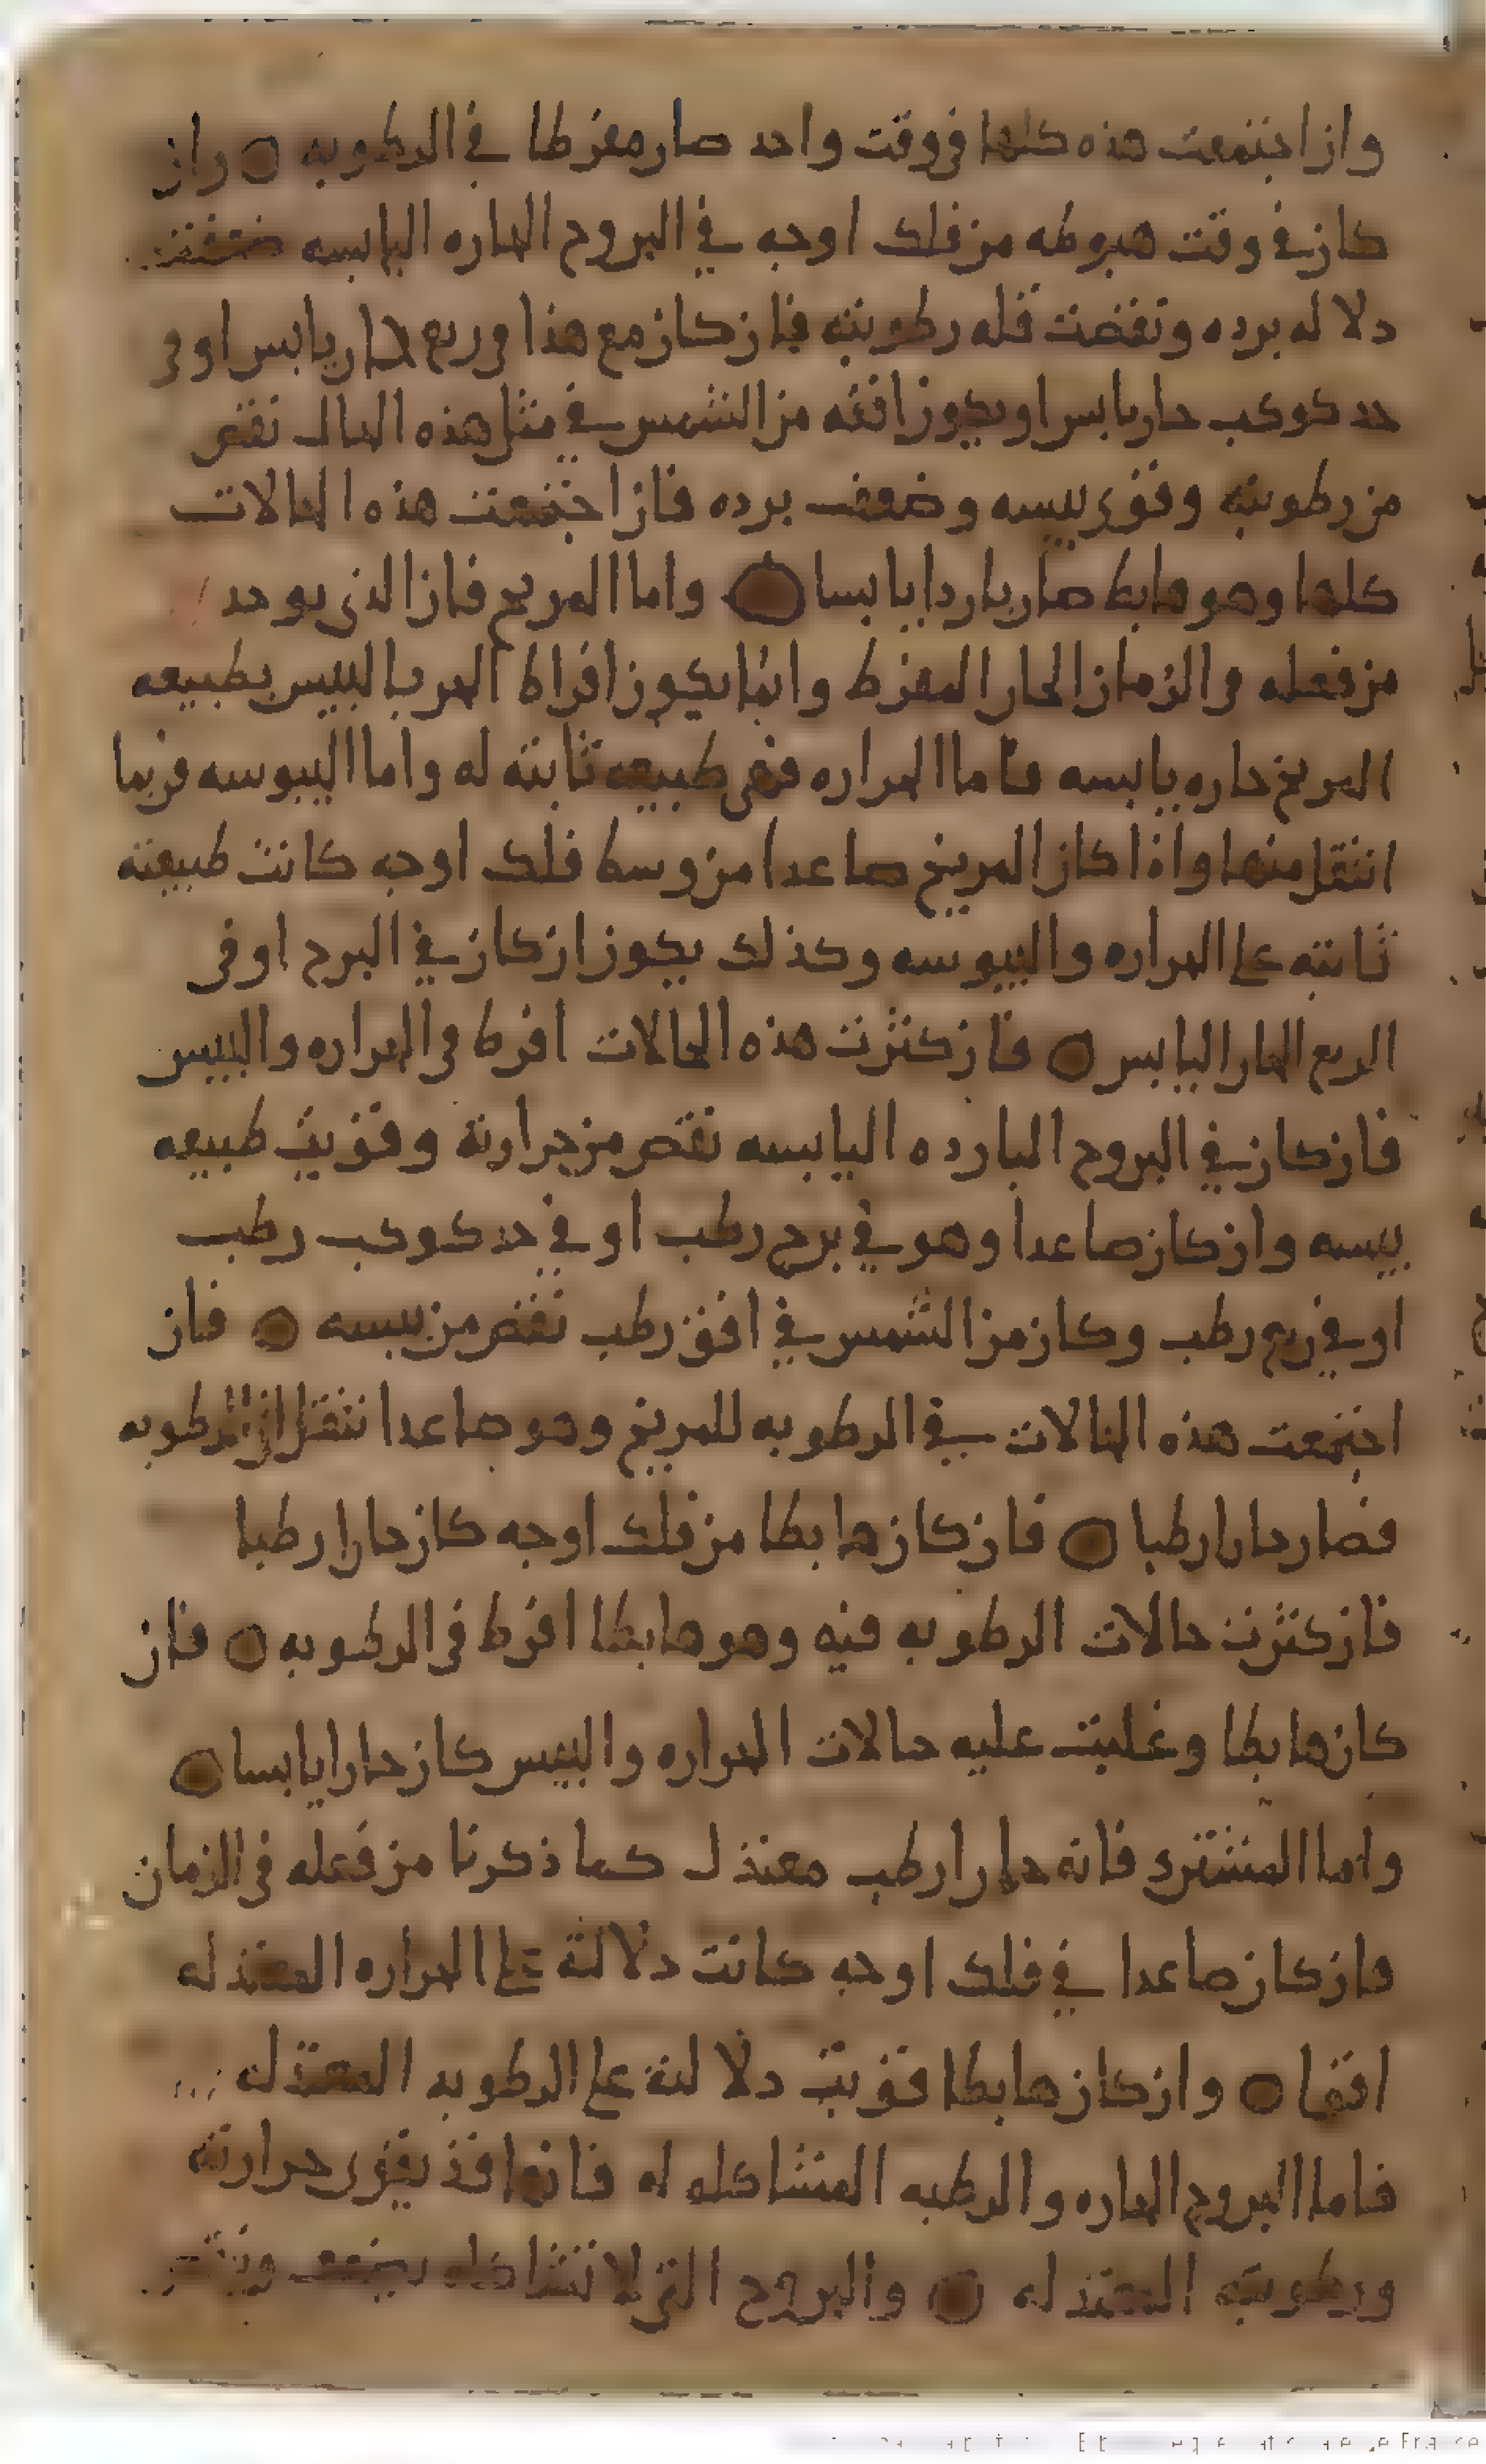 وان اجتمعت هذه كلها في وقت واحد صار مفرطا في الرطوبه ○ وان
كان في وقت هبوطه من فلك اوجه في البروج الحاره اليابسه ضعفت
دلاله برده ونقصت قله رطوبته فان كان مع هذا في ربع حار يابس او في
حد كوكب حار يابس او يكون افقه من الشمس في مثل هذه الحال نقص
من رطوبته وقوي يبسه وضعف برده فان اجتمعت هذه الحالات
كلها وهو هابط صار باردا يابسا ○ واما المريخ فان الذي يوجد
من فعله في الزمان الحار المفرط وانما يكون افراط الحر باليبس بطبيعه
المريخ حاره يابسه فاما الحراره فهي طبيعه ثابته له واما اليبوسه فربما
انتقل منها واذا كان المريخ صاعدا من وسط فلك اوجه كانت طبيعته
ثابته على الحراره واليبوسه وكذلك يكون ان كان في البرج او في
الربع الحار اليابس ○ فان كثرت هذه الحالات افرط في الحراره واليبس
فان كان في البروج البارده اليابسه نقص من حرارته وقويت طبيعه
يبسه وان كان صاعدا وهو في برج رطب او في حد كوكب رطب
او في ربع رطب وكان من الشمس في افق رطب نقص من يبسه ○ فان
اجتمعت هذه الحالات في الرطوبه للمريخ وهو صاعدا انتقل الى الرطوبه
فصار حارا رطبا ○ فان كان هابطا من فلك اوجه كان حارا رطبا
فان كثرت حالات الرطوبه فيه وهو هابطا افرط في الرطوبه ○ فان
كان هابطا وغلبت عليه حالات الحراره واليبس كان حارا يابسا ○
واما المشتري فانه حارا رطب معتدل كما ذكرنا من فعله في الزمان
فان كان صاعدا في فلك اوجه كانت دلالته على الحراره المعتدله
افقا ○ وان كان هابطا قويت دلالته على الرطوبه المعتدله
فاما البروج الحاره والرطبه المشاكله له فانها قد يقوي حرارته
ورطوبته المعتدله ○ والبروج التي لا تشاكله